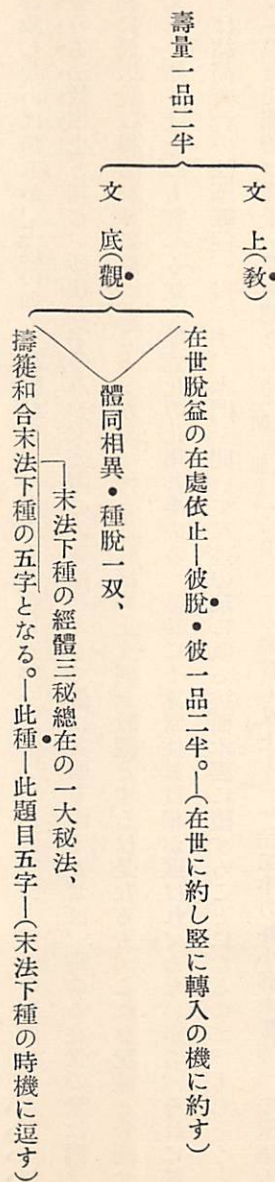 壽量一品二半
文　上(敎)
文　底(觀)
在世脫益の在處依止―彼脫・彼一品二半。―(在世に約し竪に轉入の機に約す)
體同相異・種脫一双、
末法下種の經體三秘總在の一大秘法、
擣篵和合末法下種の五字となる。―此種―此題目五字―(末法下種の時機に逗す)